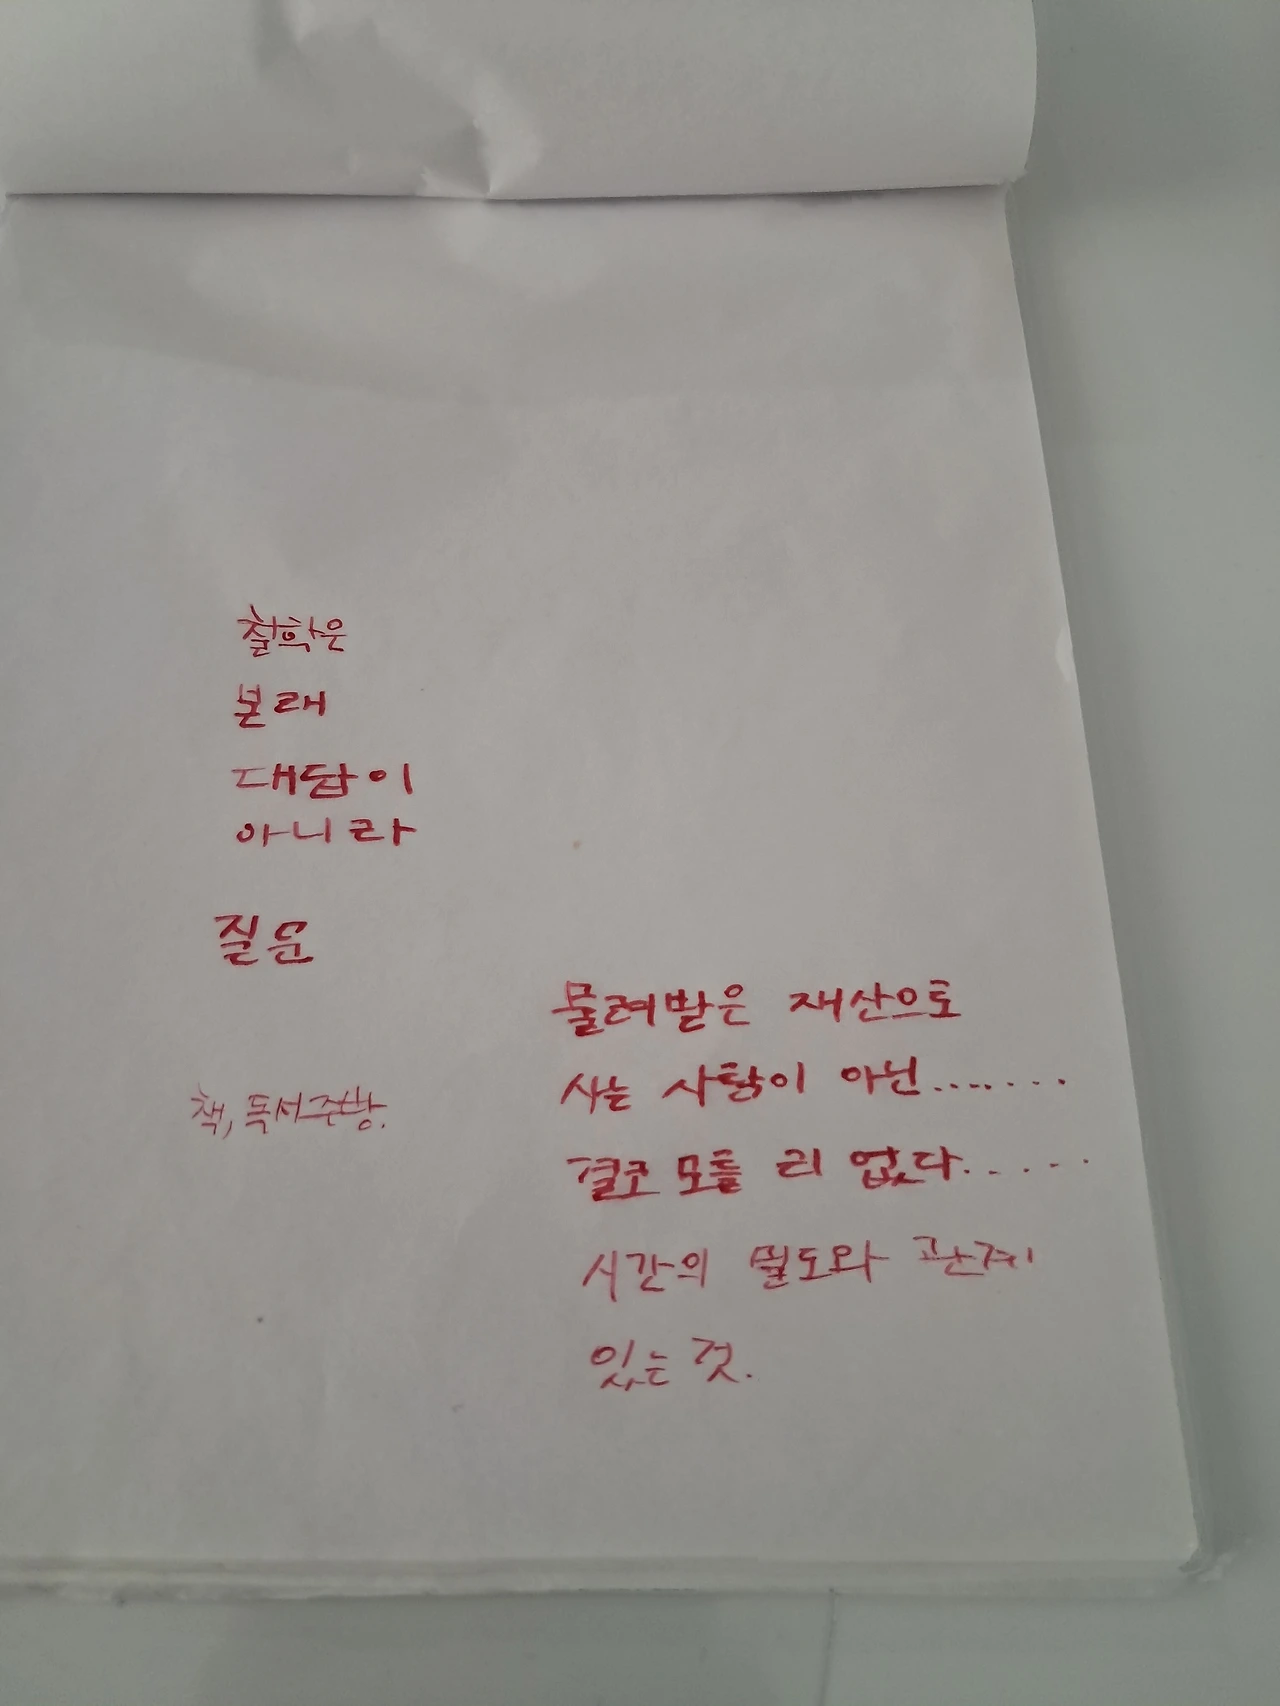 철학은
본래
대답이
아니라
질문
책, 독서주방.
물려받은 재산으로
사는 사람이 아닌.......
결코 모를 리 없다.....
시간의 밀도와 관계
있는 것.